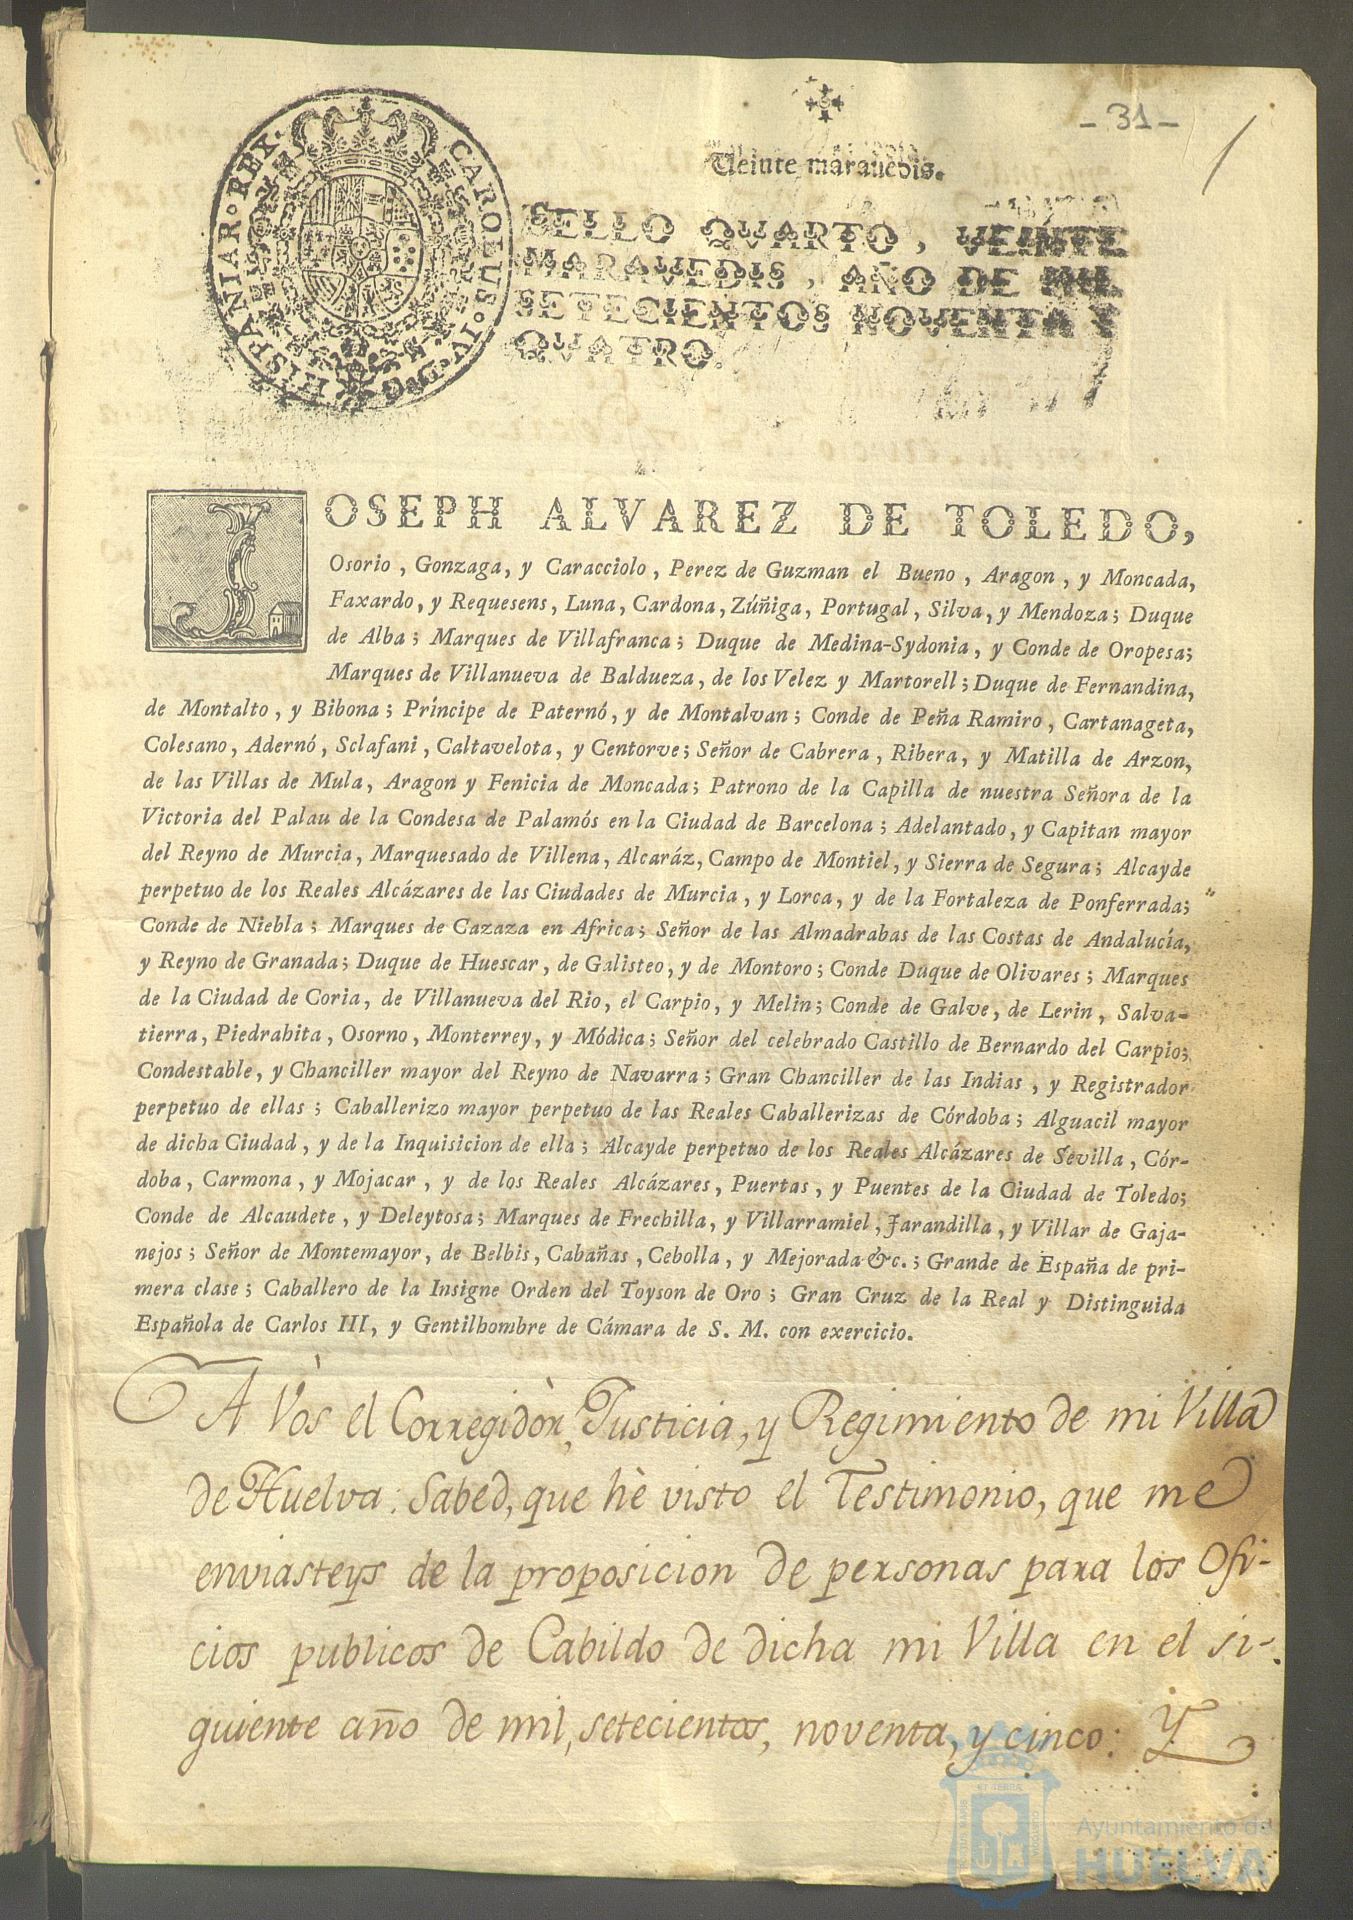 - 31 -
Veinte maravedis.
SELLO QVARTO, VEINTE
MARAVEDIS, AÑO DE MIL
SETECIENTOS NOVENTA Y
QVATRO.
CAROLUS · IV · D · G · HISPANIAR · REX ·
JOSEPH ALVAREZ DE TOLEDO,
Osorio, Gonzaga, y Caracciolo, Perez de Guzman el Bueno, Aragon, y Moncada,
Faxardo, y Requesens, Luna, Cardona, Zúñiga, Portugal, Silva, y Mendoza; Duque
de Alba; Marques de Villafranca; Duque de Medina-Sydonia, y Conde de Oropesa;
Marques de Villanueva de Baldueza, de los Velez y Martorell; Duque de Fernandina,
de Montalto, y Bibona; Príncipe de Paternó, y de Montalvan; Conde de Peña Ramiro, Cartanageta,
Colesano, Adernó, Sclafani, Caltavelota, y Centorve; Señor de Cabrera, Ribera, y Matilla de Arzon,
de las Villas de Mula, Aragon y Fenicia de Moncada; Patrono de la Capilla de nuestra Señora de la
Victoria del Palau de la Condesa de Palamós en la Ciudad de Barcelona; Adelantado, y Capitan mayor
del Reyno de Murcia, Marquesado de Villena, Alcaráz, Campo de Montiel, y Sierra de Segura; Alcayde
perpetuo de los Reales Alcázares de las Ciudades de Murcia, y Lorca, y de la Fortaleza de Ponferrada;
Conde de Niebla; Marques de Cazaza en Africa; Señor de las Almadrabas de las Costas de Andalucía,
y Reyno de Granada; Duque de Huescar, de Galisteo, y de Montoro; Conde Duque de Olivares; Marques
de la Ciudad de Coria, de Villanueva del Rio, el Carpio, y Melin; Conde de Galve, de Lerin, Salva-
tierra, Piedrahita, Osorno, Monterrey, y Módica; Señor del celebrado Castillo de Bernardo del Carpio;
Condestable, y Chanciller mayor del Reyno de Navarra; Gran Chanciller de las Indias, y Registrador
perpetuo de ellas; Caballerizo mayor perpetuo de las Reales Caballerizas de Córdoba; Alguacil mayor
de dicha Ciudad, y de la Inquisicion de ella; Alcayde perpetuo de los Reales Alcázares de Sevilla, Cór-
doba, Carmona, y Mojacar, y de los Reales Alcázares, Puertas, y Puentes de la Ciudad de Toledo;
Conde de Alcaudete, y Deleytosa; Marques de Frechilla, y Villarramiel, Jarandilla, y Villar de Gaja-
nejos; Señor de Montemayor, de Belbis, Cabañas, Cebolla, y Mejorada &c.; Grande de España de pri-
mera clase; Caballero de la Insigne Orden del Toyson de Oro; Gran Cruz de la Real y Distinguida
Española de Carlos III, y Gentilhombre de Cámara de S. M. con exercicio.
A Vòs el Corregidòr, Justicia, y Regimiento de mi Villa
de Huelva: Sabed, que hè visto el Testimonio, que me
enviasteys de la proposicion de personas para los Ofi-
cios publicos de Cabildo de dicha mi Villa en el si-
guiente año de mil, setecientos, noventa, y cinco: Y
Ayuntamiento de
HUELVA